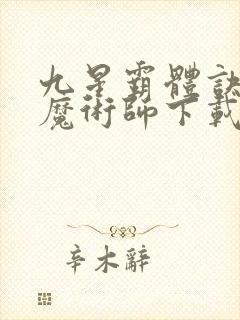 九星霸體訣
魔術師下載
辛木辭